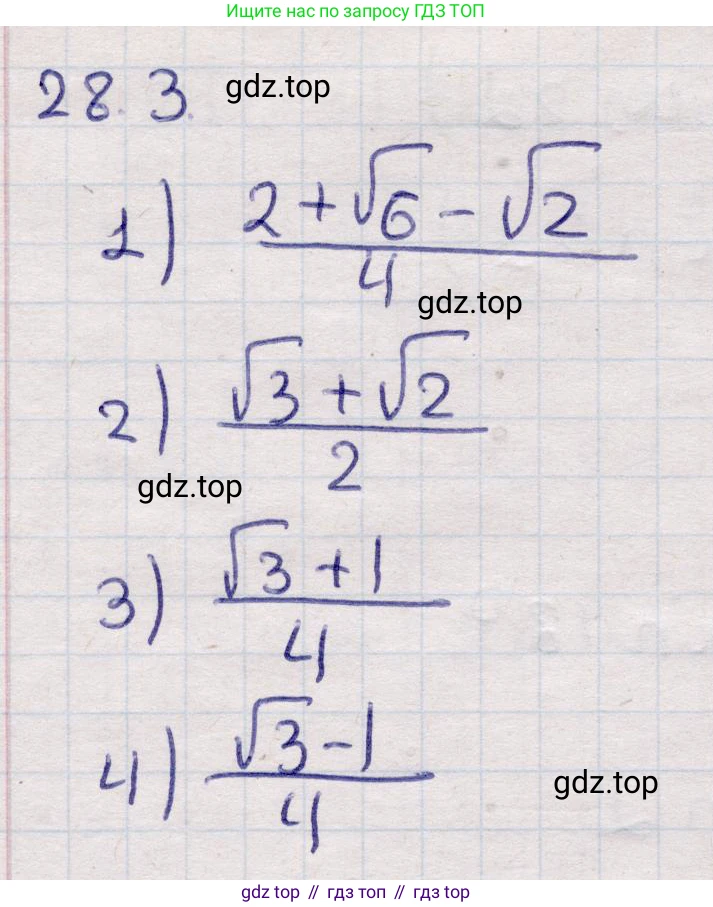 Ищите нас по запросу ГДЗ ТОП
28.3. gdz.top
1) (2 + √6 - √2) / 4
gdz.top
2) (√3 + √2) / 2
gdz.top
3) (√3 + 1) / 4
4) (√3 - 1) / 4
gdz.top
gdz top // гдз топ // гдз top